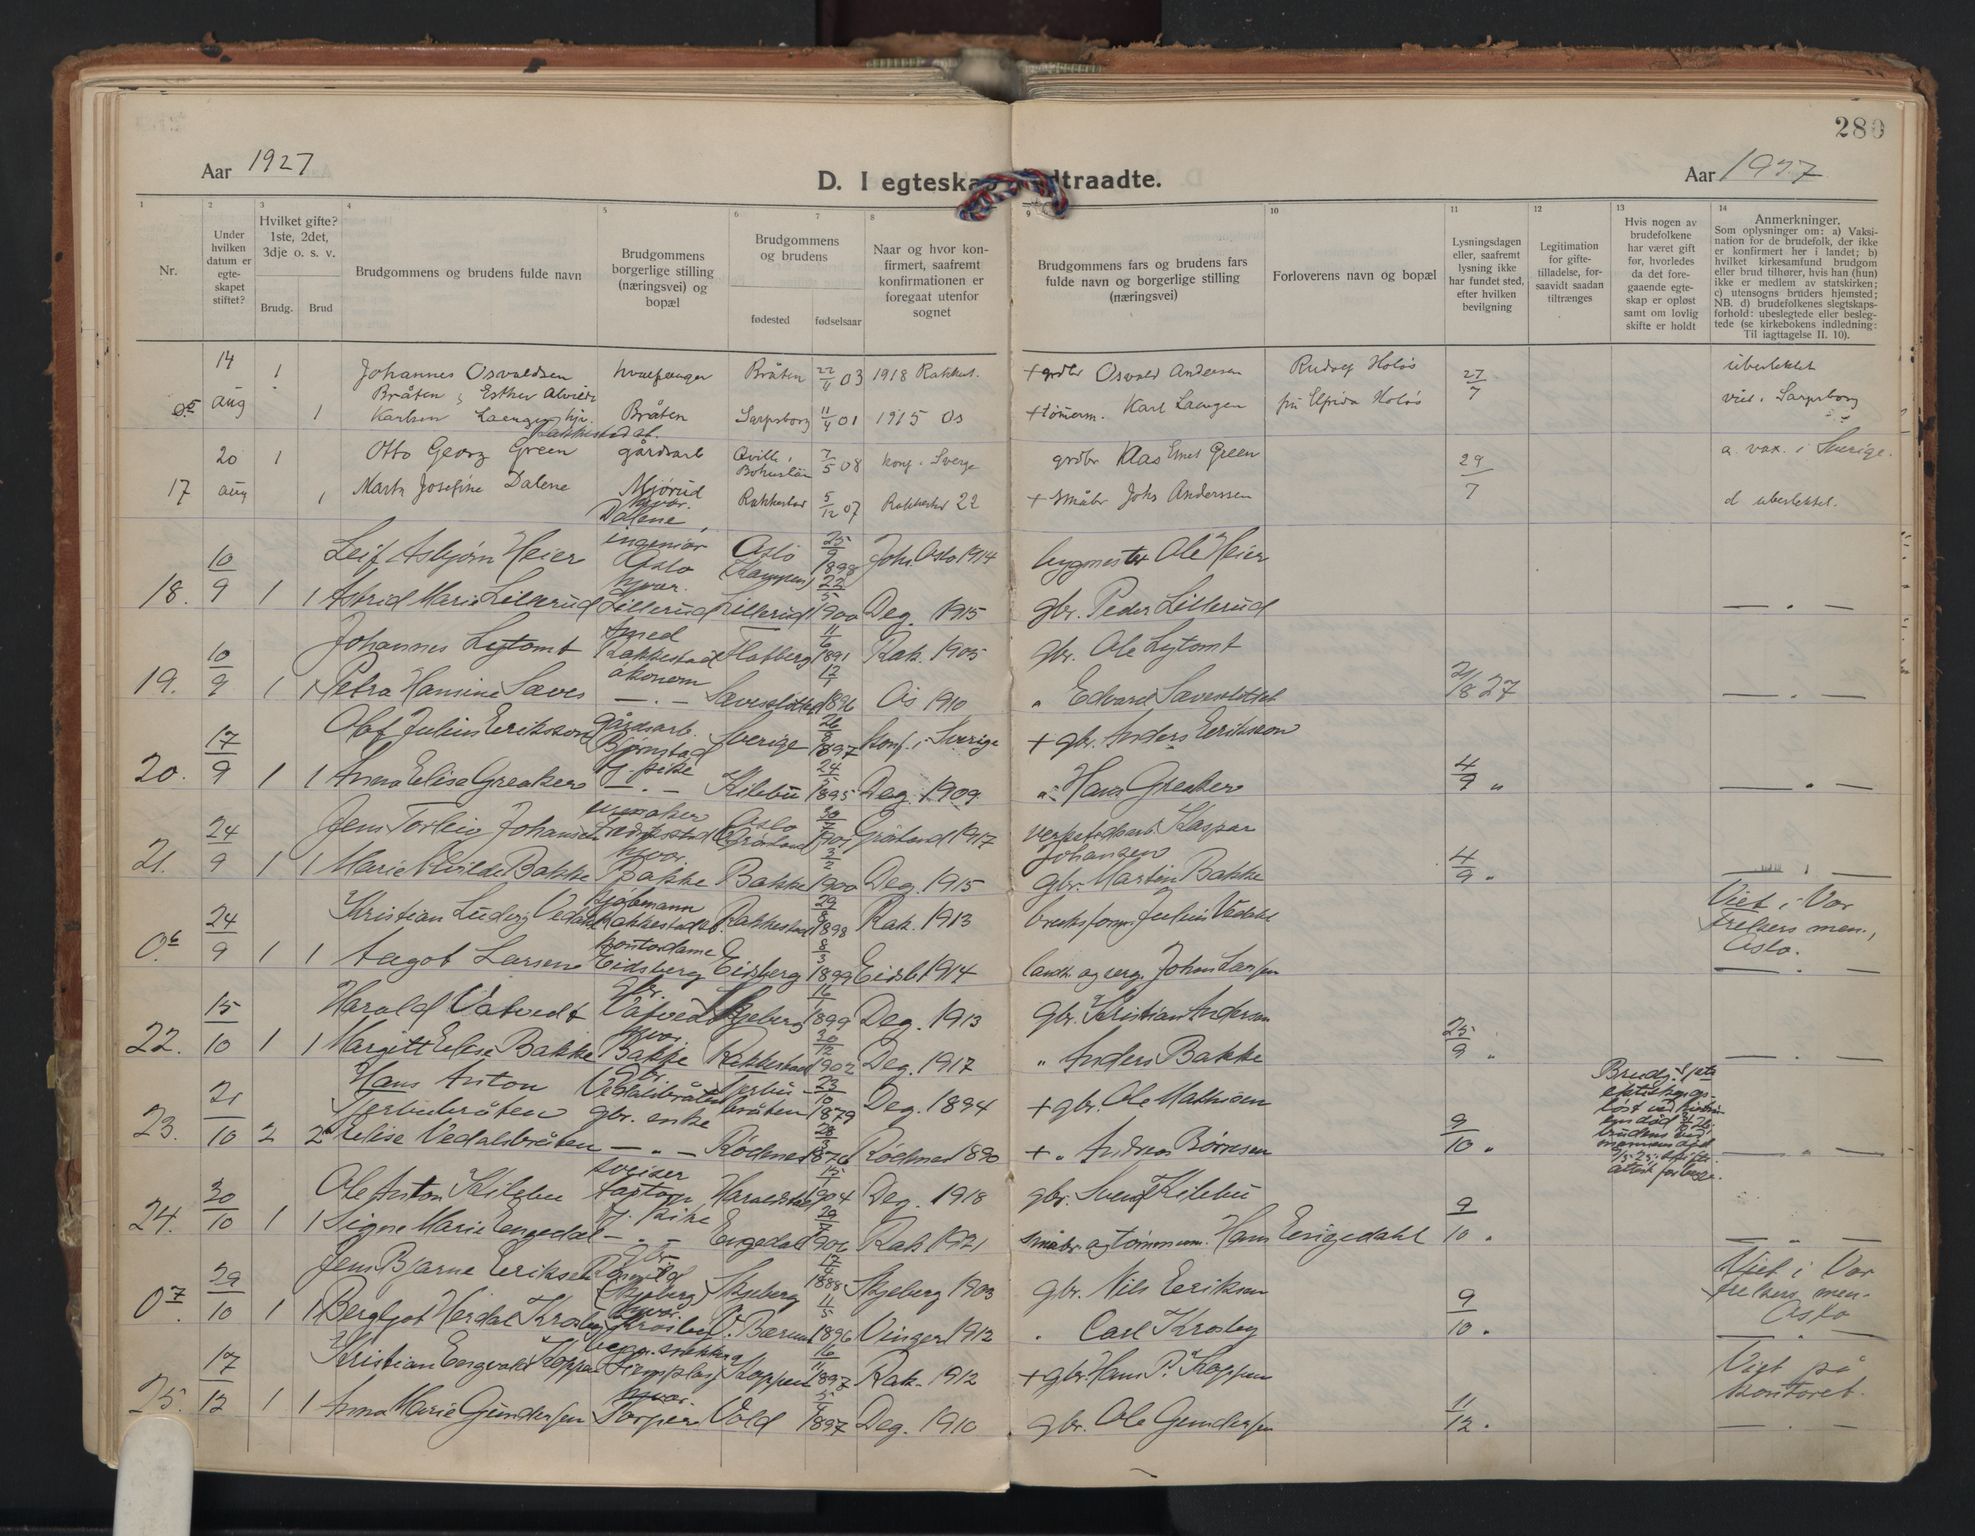 280
Aar 1927
D. I egteskap indtraadte.
Aar 1927
1 2 3 4 5 6 7 8 9 10 11 12 13 14
Nr.
Under hvilken datum er egteskapet stiftet?
Hvilket gifte? 1ste, 2det, 3dje o. s. v.
Brudg. Brud
Brudgommens og brudens fulde navn
Brudgommens borgerlige stilling (næringsvei) og bopæl
Brudgommens og brudens
fødested fødselsaar
Naar og hvor konfirmert, saafremt konfirmationen er foregaat utenfor sognet
Brudgommens fars og brudens fars fulde navn og borgerlige stilling (næringsvei)
Forloverens navn og bopæl
Lysningsdagen eller, saafremt lysning ikke har fundet sted, efter hvilken bevilgning
Legitimation for giftetilladelse, forsaavidt saadan tiltrænges
Hvis nogen av brudefolkene har været gift før, hvorledes da det foregaaende egteskap er opløst samt om lovlig skifte er holdt
Anmerkninger.
Som oplysninger om: a) Vaksination for de brudefolk, der ikke er konfirmert her i landet; b) hvilket kirkesamfund brudgom eller brud tilhører, hvis han (hun) ikke er medlem av statskirken; c) utensogns bruders hjemsted; NB. d) brudefolkenes slegtskapsforhold: ubeslegtede eller beslegtede (se kirkebokens indledning: Til iagttagelse II. 10).
14 aug 1 Johannes Osvaldsen Bråten hvalfanger Bråten 22/4 03 1918 Rakkest. + grdbr Osvald Andersen Rudolf Holøs 27/7 ubeslektet
1 Esther Alvilde Karlsen Laengen hjv. Bråten Sarpsborg 11/4 01 1915 Os + tømerm. Karl Laengen fru Elfrida Holøs viet i Sarpsborg
17 20 aug 1 Otto Georg Green gårdsarb Mjørud Qville, Bohuslän 7/5 08 konf. i Sverge grdbr Klas Emet Green 29/7 a. vax. i Sverige.
1 Marta Josefine Dalene hjvær. Dalene Rakkestad 5/12 07 Rakkestad 22 + småbr Johs Anderssen d ubeslektet.
18. 10/9 1 Leif Asbjørn Heier ingeniør Oslo Oslo (Kampen) 25/9 1898 Joh. Oslo 1914 bygmester Ole Heier
1 Astrid Marie Lillerud hjvær. Lillerud Lillerud 22/5 1900 Deg. 1915 gbr. Peder Lillerud — " —
19. 10/9 1 Johannes Lytomt smed Rakkestad Flatberg 11/6 1891 Rak. 1905 gbr. Ole Lytomt
1 Petra Hansine Sæves økonom — " — Sæveslottet 17/1 1896 Os 1910 " Edvard Sæveslottet 21/8 27 — " —
20. 17/9 1 Olaf Julius Eriksson gårdsarb. Bjørnstad Sverige 26/2 1897 Konf. i Sverige + gbr. Anders Eriksson
1 Anna Elise Greaker tj. pike — " — Kilebu 24/5 1895 Deg. 1909 " Hans Greaker 4/9 " — " —
21. 24/9 1 Jens Torleiv Johansen Oslo Grønland Grønland 1917 verkstedsarb. Kaspar Johansen
1 Marie Alvilde Bakke hjvær. Bakke Bakke 3/2 1900 Deg. 1915 gbr. Martin Bakke 4/9 "
0.6 24/9 1 Kristian Ludvig Vedahl kjøbmann Rakkestad st. Rakkestad 29/8 1898 Rak. 1913 Julius Vedahl Viet i Vor Frelsers men., Oslo.
1 Aagot Larsen kontordame Eidsberg Eidsberg 8/3 1899 Eidsb. 1914 landh. og Johan Larsen — " —
22. 15/10 1 Harald Vatvedt gbr. Vatvedt Skjeberg 16/1 1899 Deg. 1913 gbr. Kristian Andersen
1 Margitt Elise Bakke hjvær. Bakke Rakkestad 30/12 1902 Deg. 1917 " Anders Bakke 25/9 " — " —
23. 21/10 2 Hans Anton Tjerbubråten gbr. Vedalsbråten Tjerbubråten 23/10 1879 Deg. 1894 + gbr. Ole Mathisen
2 Elise Vedalsbråten gbr. enke — " — Rødenes 28/3 1876 Rødenes 1890 + " Andreas Børresen 9/10 " — " —
24. 30/10 1 Ole Anton Kilebu sveiser Harrelstad 15/1 1904 Deg. 1918 gbr. Svend Kilebu
1 Signe Marie Engedal tj. pike — " — Engedal 29/7 1906 Rak. 1921 småbr. og tømmerm. Hans Engedahl 9/10 " — " —
0.7 29/10 1 Jens Bjarne Eriksen gbr. (Skjeberg) Skjeberg 17/4 1888 Skjeberg 1903 gbr. Nils Eriksen Viet i Vor Frelsers men. Oslo
1 Bergljot Herdal Krosby hjvær. Krosby V. Bærum 11/5 1896 Vinger 1912 " Carl Krosby 9/10 " — " —
25. 17/12 1 Kristian Engvald Koppen Koppen 16/11 1897 Rak. 1912 + gbr. Hans P. Koppen Viet på kontoret.
1 Anna Marie Gundersen hjvær. Torper Vold 1897 Deg. 1910 gbr. Ole Gundersen 11/12 " — " —